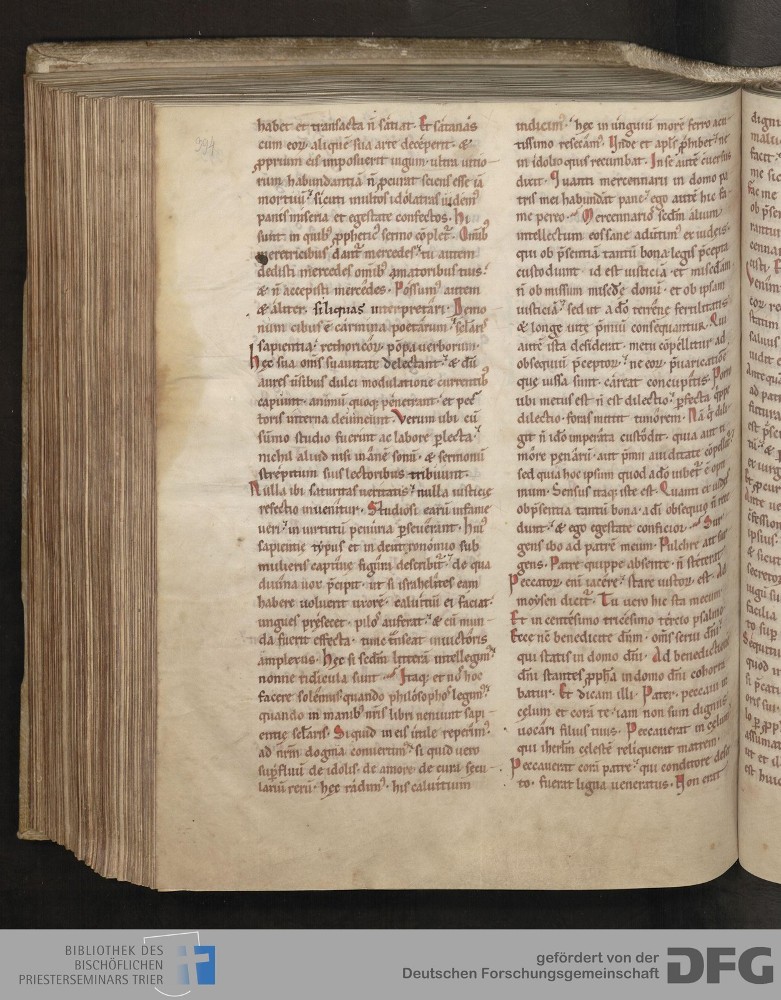 394.
habet et transacta n̄ satiat. Et satanas
cum eoꝝ aliquē sua arte deceperit. &
ꝓprium eis imposuerit iugum. ultra uitio
rum habundantiā n̄ ꝓcurat sciens esse iā
mortuū. sicuti multos idolatras uidem᷒
panis miseria et egestate confectos. Hi
sunt in quib᷒ ꝓpheticᷤ sermo cōplet᷑. Omib᷒
meretricibus dant᷑ mercedes. tu autem
dedisti mercedes omib᷒ amatoribus tuis.
& n̄ accepisti mercedes. Possum᷒ autem
& aliter. siliquas interpretari. Demo
num cibus ē carmina poetarum. sclaris
sapientia. rethoricoꝝ pōpa uerborum.
Hęc sua oms suauitate delectant. & dū
aures uſibus dulci modulatione currentib᷒
capiunt. animū quoq; penetrant. et pec
toris interna deuinciunt. Verum ubi cū
sūmo studio fuerint ac labore plecta.
nichil aliud nisi inānē sonū. & sermonū
strepitum suis lectoribus tribuunt.
Nulla ibi saturitas ueritatis. nulla iusticię
refectio inuenitur. Studiosi earū in fame
ueri. in uirtutū penuria pseuerant. Hui᷒
sapientie typus et in deuteronomio sub
mulieris captiue figura describit᷑. de qua
diuina uox pcipit. ut si israhelites eam
habere uoluerit uxorē. caluitiū ei faciat.
ungues psecet. pilos auferat. & cū mun
da fuerit effecta. tunc trāseat in uictoris
amplexus. Hęc si scdm litterā intellegim᷒.
nonne ridicula sunt. Itaq; et nos hoc
facere solem᷒ quando philosophos legim᷒.
quando in manib᷒ nris libri ueniunt sapi
entie sclaris. Si quid in eis utile reperim᷒.
ad nrm dogma conuertim᷒. si quid uero
supfluū de idolis. de amore. de cura secu
lariū rerū. hęc radim᷒. his caluitium
indicim᷒. hęc in unguiū morē ferro acu
tissimo resecam᷒. Unde et apls ꝓhibet. ne
in idolio quis recumbat. In se autē reuersus
dixit. Quanti mercennarii in domo pa
tris mei habundāt pane. ego autē hic fa
me pereo. Mercennarios scdm alium
intellectum eos sane aduertim᷒ ex iudeis.
qui ob psentia tantū bona legis pcepta
custodiunt. id est iusticiā et misedam
n̄ ob missum misede donū. et ob ipsam
iusticiā. sed ut a do terrene fertilitatis
& longe uite pmiū consequantur. Qui
autē ista desiderat. metu cōpellitur ad
obsequiū pceptoꝝ. ne eoꝝ puaricatiōe
que iussa sunt. careat concupitis. Porro
ubi metus est n̄ est dilectio. pfecta qppe
dilectio. foras mittit timorem. Nā q̄ dili
git n̄ idō imperata custodit. quia aut ti
more penarū. aut pmii auiditate cōpellit᷑.
sed quia hoc ipsum quod a dō iubet᷑ ē opti
mum. Sensus itaq; iste est. Quanti ex iudeis
ob psentia tantū bona. a di obsequio n̄ rece
dunt. & ego egestate conficior. Sur
gens ibo ad patrē meum. Pulchre ait sur
gens. Patre quippe absente. n̄ steterat.
Peccatoꝝ enī iacere. stare iustoꝝ est. Ad
moysen dicit᷑. Tu uero hic sta mecum.
Et in centesimo tricesimo tercio psalmo.
Ecce nc benedicite dnm. oms serui dni.
qui statis in domo dni. Ad benedictionē
dni stantes ꝓpha in domo dni cohorta
batur. Et dicam illi. Pater. peccaui in
celum et corā te. iam non sum dignus
uocari filius tuus. Peccauerat in celum
qui iherlm celestē reliquerat matrem.
Peccauerat corā patre. qui conditore deser
to. fuerat ligna ueneratus. Non erat
BIBLIOTHEK DES
BISCHÖFLICHEN
PRIESTERSEMINARS TRIER
gefördert von der
Deutschen Forschungsgemeinschaft
DFG